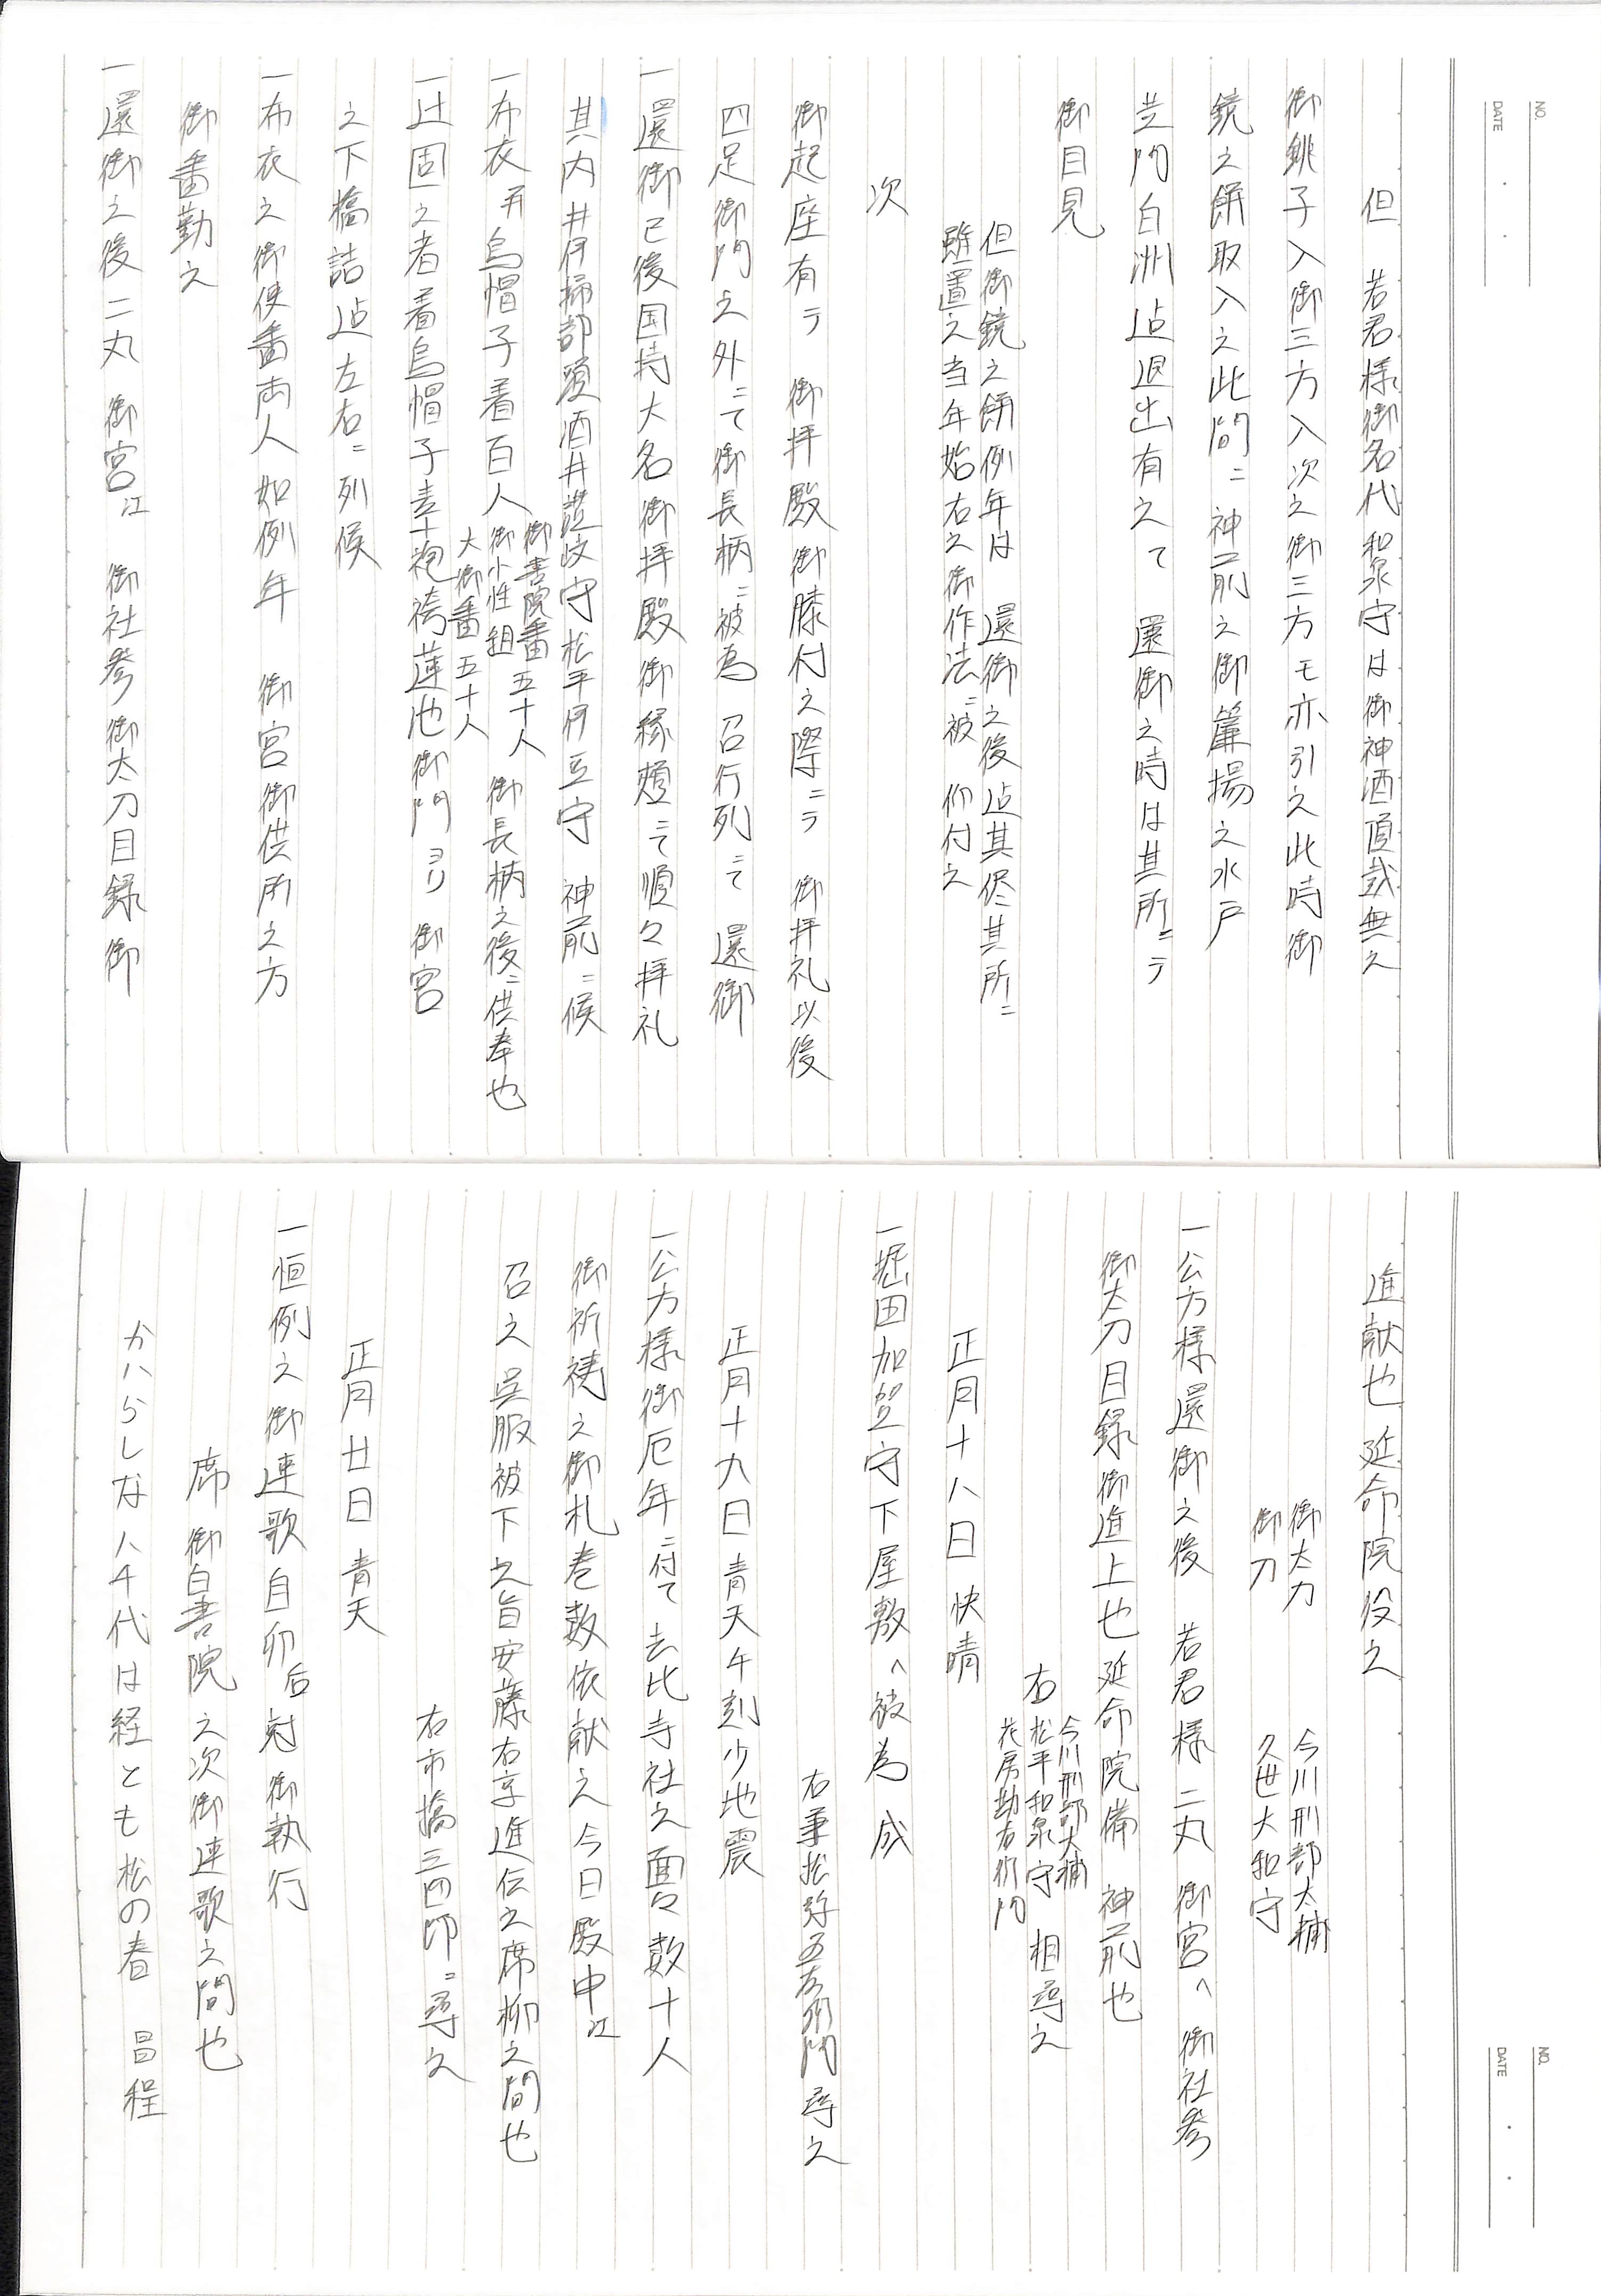 NO.
DATE
但　若君様御名代和泉守は御神酒頂戴無之
御銚子入御三方入次之御三方モ亦引之此時御
鏡之餅取入之此間ニ神前之御簾揚之水戸
芝門白洲迠退出有之て　還御之時は其所ニテ
御目見
但御鏡之餅例年は　還御之後迠其侭其所ニ
雖置之当年始右之御作法ニ被　仰付之
次
御起座有テ　御拝殿御膝付之際ニテ　御拝礼以後
四足御門之外ニて御長柄ニ被為　召行列ニて　還御
一還御已後国持大名御拝殿御縁頬ニて順々拝礼
其内井伊掃部頭酒井讃岐守松平伊豆守　神前ニ候
一布衣并烏帽子着百人　御書院番　御小性組　五十人　大御番　五十人　御長柄之後ニ供奉也
一辻固之者着烏帽子素袍袴蓮池御門ヨリ　御宮
之下橋詰迠左右ニ列候
一布衣之御使番両人如例年　御宮御供所之方
御番勤之
一還御之後二丸　御宮江　御社参御太刀目録御
NO.
DATE
進献也延命院役之
御太刀　今川刑部太輔
御刀　久世大和守
一公方様還御之後　若君様二丸　御宮へ　御社参
御太刀目録御進上也延命院備　神前也
今川刑部大輔
右松平和泉守　相尋之
花房勘右衛門
正月十八日　快晴
一堀田加賀守下屋敷へ被為　成
右車松弥五左衛門尋之
正月十九日　青天午刻少地震
一公方様御厄年ニ付て去比寺社之面々数十人
御祈祷之御札巻数依献之今日殿中江
召之呉服被下之旨安藤右京進伝之席柳之間也
右市橋三四郎ニ尋之
正月廿日　青天
一恒例之御連歌自卯后刻御執行
席　御白書院之次御連歌之間也
かハらしな八千代は経とも松の春　昌程